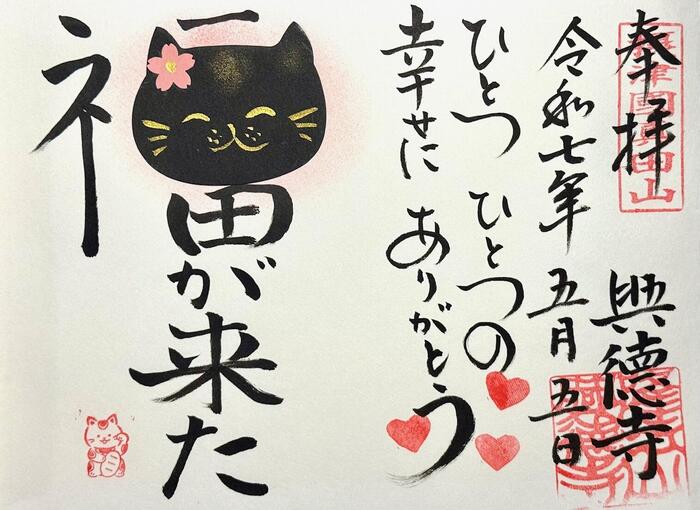 奉拝
興德寺
令和七年 五月 五日
ひとつ ひとつの
幸せに ありがとう
福が来た